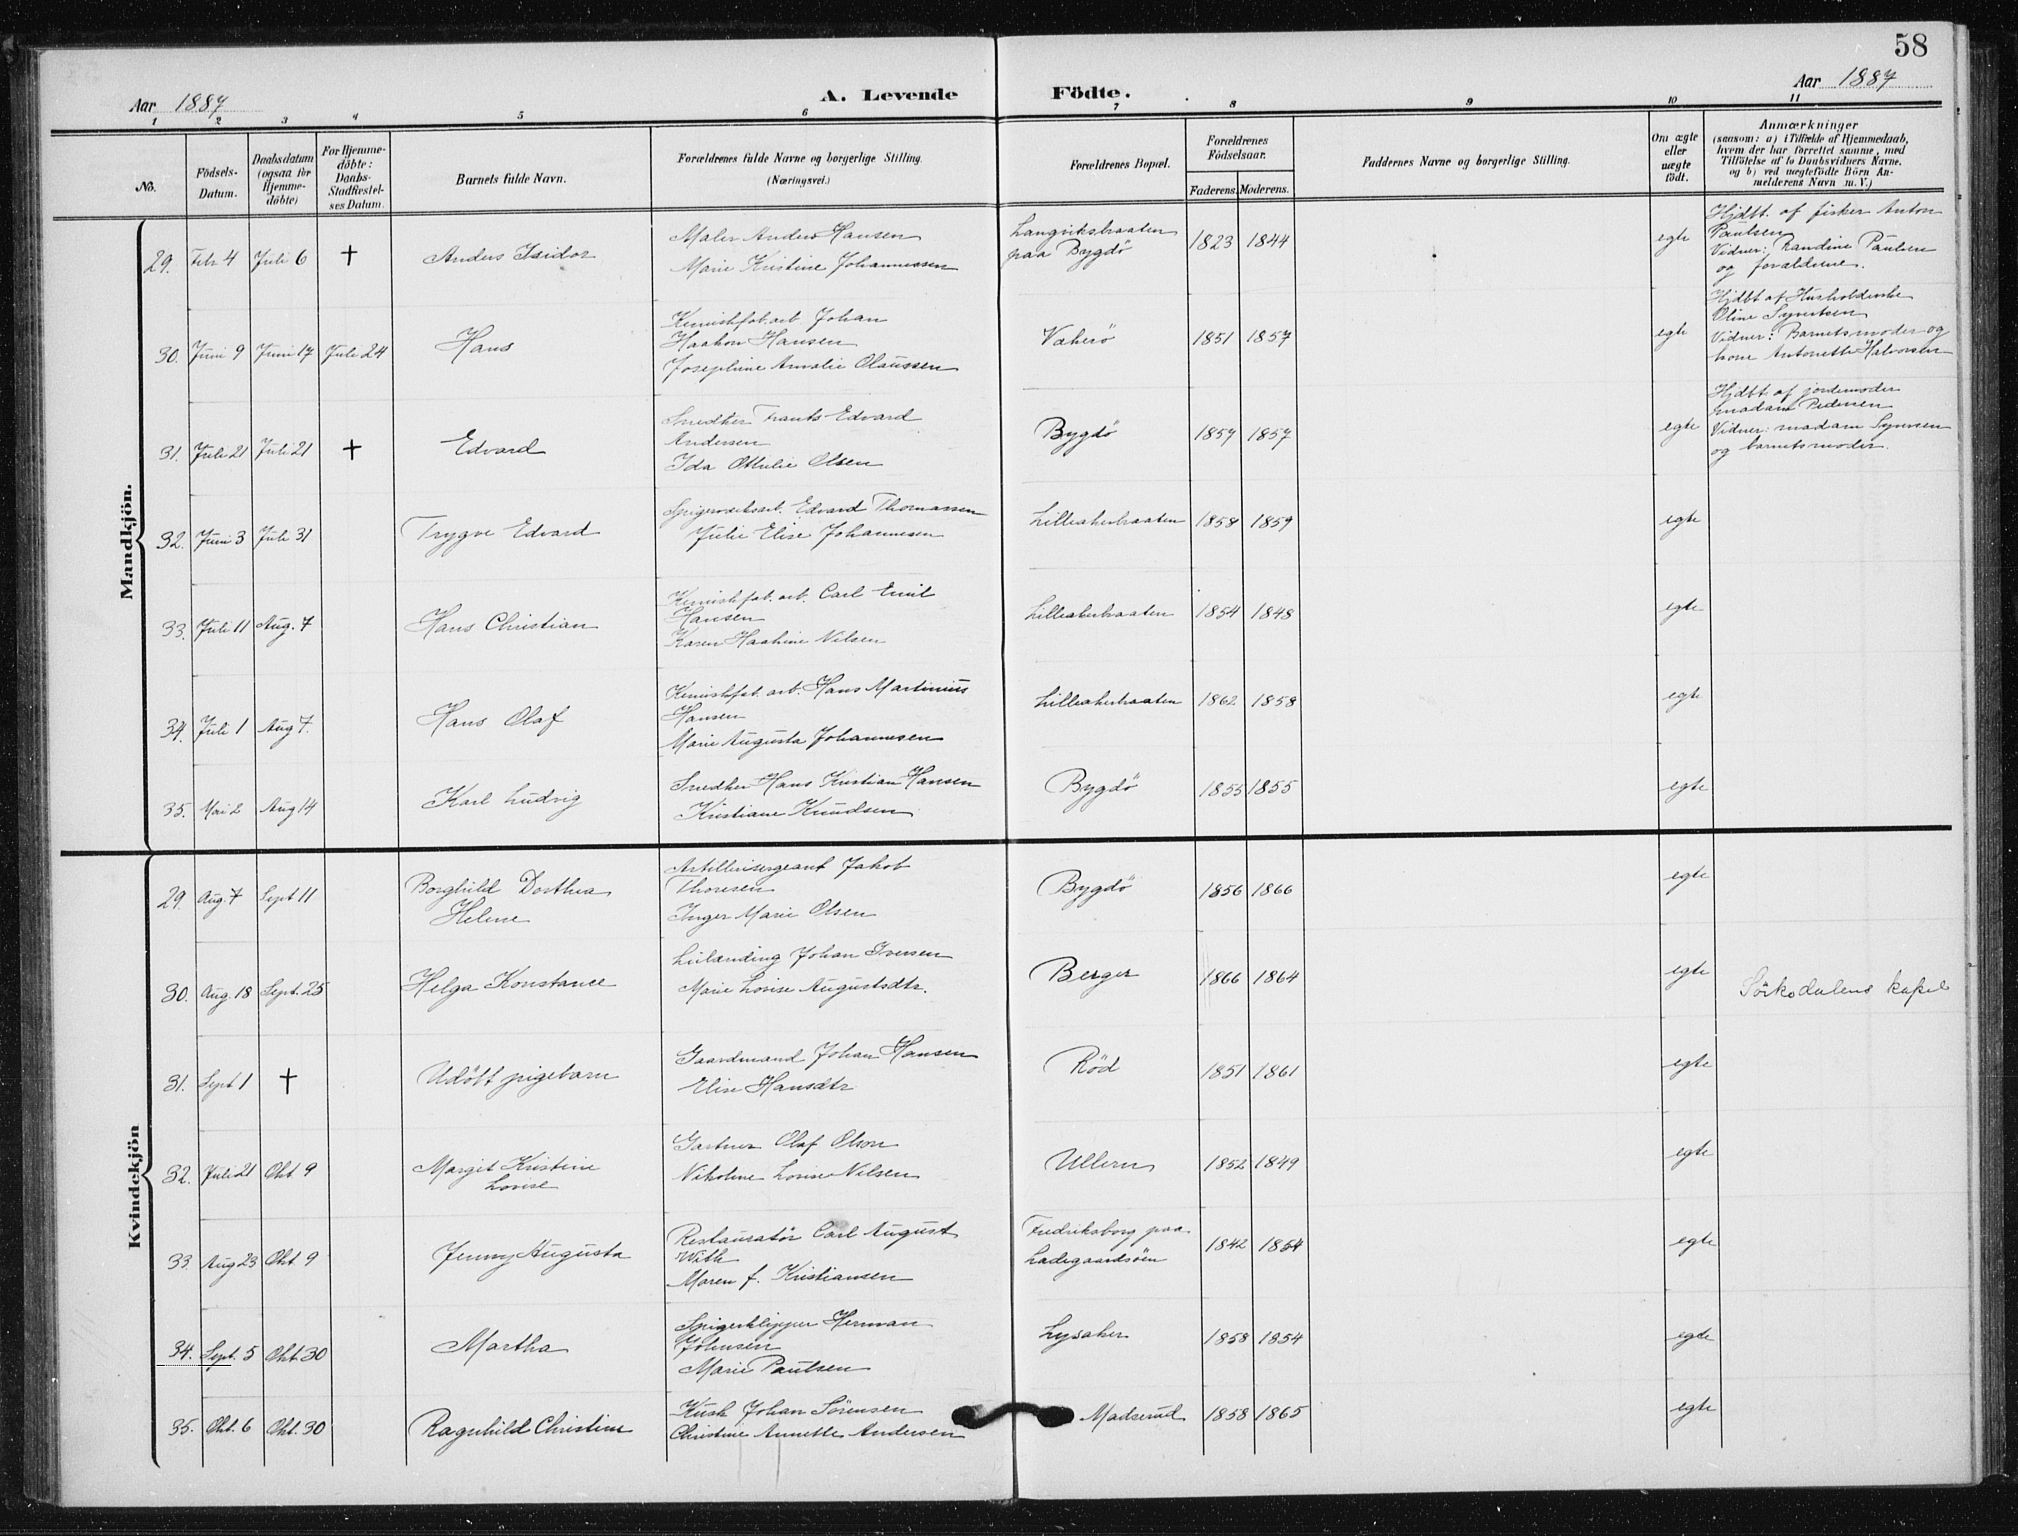 58
Aar 1887
A. Levende Födte.
Aar 1887
1 2 3 4 5 6 7 8 9 10 11
No.
Födsels-Datum.
Daabsdatum (ogsaa för Hjemme-döbte)
For Hjemme-döbte: Daabs-Stadfæstel-ses Datum.
Barnets fulde Navn.
Forældrenes fulde Navne og borgerlige Stilling.
(Næringsvei.)
Forældrenes Bopæl.
Forældrenes Födselsaar.
Faderens. Moderens.
Faddernes Navne og borgerlige Stilling.
Om ægte eller uægte födt.
Anmærkninger
(saasom: a) i Tilfælde af Hjemmedaab,
hvem der har forrettet samme, med
Tilföielse af to Daabsvidners Navne,
og b) ved uægtefödte Börn An-
melderens Navn m. V.)
Mandkjön.
29. Febr 4 Juli 6 † Anders Isidor
Maler Anders Hansen
Marie Kristine Johannessen
Langviksbraaten
paa Bygdö
1823 1844 egte
Hjdbt. af fisker Anton
Paulsen
Vidner: Randine Paulsen
og forældrene.
30. Juni 9 Juni 17 Juli 24 Hans
Kemiskfab. arb. Johan
Haakon Hansen
Josephine Amalie Olaussen
Vækerö 1851 1857 egte
Hjdbt af Husholderske
Oline Syvertsen
Vidner: Barnets moder og
kone Antonette Halvorsen
31. Juli 21 Juli 21 † Edvard
Smedker Frants Edvard
Andersen
Ida Ottilie Olsen
Bygdö 1857 1857 egte
Hjdbt. af jordemoder
madam Pedersen
Vidner: madam
og barnets moder.
32. Juni 3 Juli 31 Trygve Edvard
Spigerverksarb. Edvard Thomassen
Julie Elise Johannesen
Lilleakerbraaten 1858 1859 egte
33. Juli 11 Aug. 7 Hans Christian
Kemisk fab. arb. Carl Emil
Hansen
Karen Haakine Nilsen
Lilleakerbraaten 1854 1848 egte
34. Juli 1 Aug 7. Hans Olaf
Kemiskfab. arb. Hans Martinius
Hansen
Marie Augusta Johannesen
Lilleakerbraaten 1862 1858 egte
35. Mai 2 Aug 14 Karl Ludvig
Smedker Hans Kristian Hansen
Kristiane Knudsen
Bygdö 1855 1855 egte
Kvindekjön
29. Aug. 7 Sept 11 Borghild Dorthea
Helene
Artillerisergeant Jakob
Thoresen
Inger Marie Olsen
Bygdö 1856 1866 egte
30. Aug. 18 Sept. 25 Helga Konstance
Leilænding Johan Iversen
Marie Lovise Augustsdtr.
Berger 1866 1864 egte
Sörkedalens kapel
31. Sept 1 † Udöbt pigebarn
Gaardmand Johan Hansen
Elise Hansdtr
Röd 1851 1861 egte
32. Juli 21 Okt. 9 Margit Kristine
Lovise
Gartner Olaf Olson
Nikoline Lovise Nilsen
Ullern 1852 1849 egte
33. Aug 23 Okt 9 Jenny Augusta
Restauratör Carl August
With
Maren f. Kristiansen
Fredriksborg paa
Ladegaardsöen
1842 1854 egte
34. Sept. 5 Okt. 30 Martha
Spigerklipper Herman
Johnsen
Marie Paulsen
Lysaker 1858 1854 egte
35. Okt. 6 Okt. 30 Ragnhild Christine
Kusk Johan Sörensen
Christine Annette Andersen
Madserud 1858 1865 egte